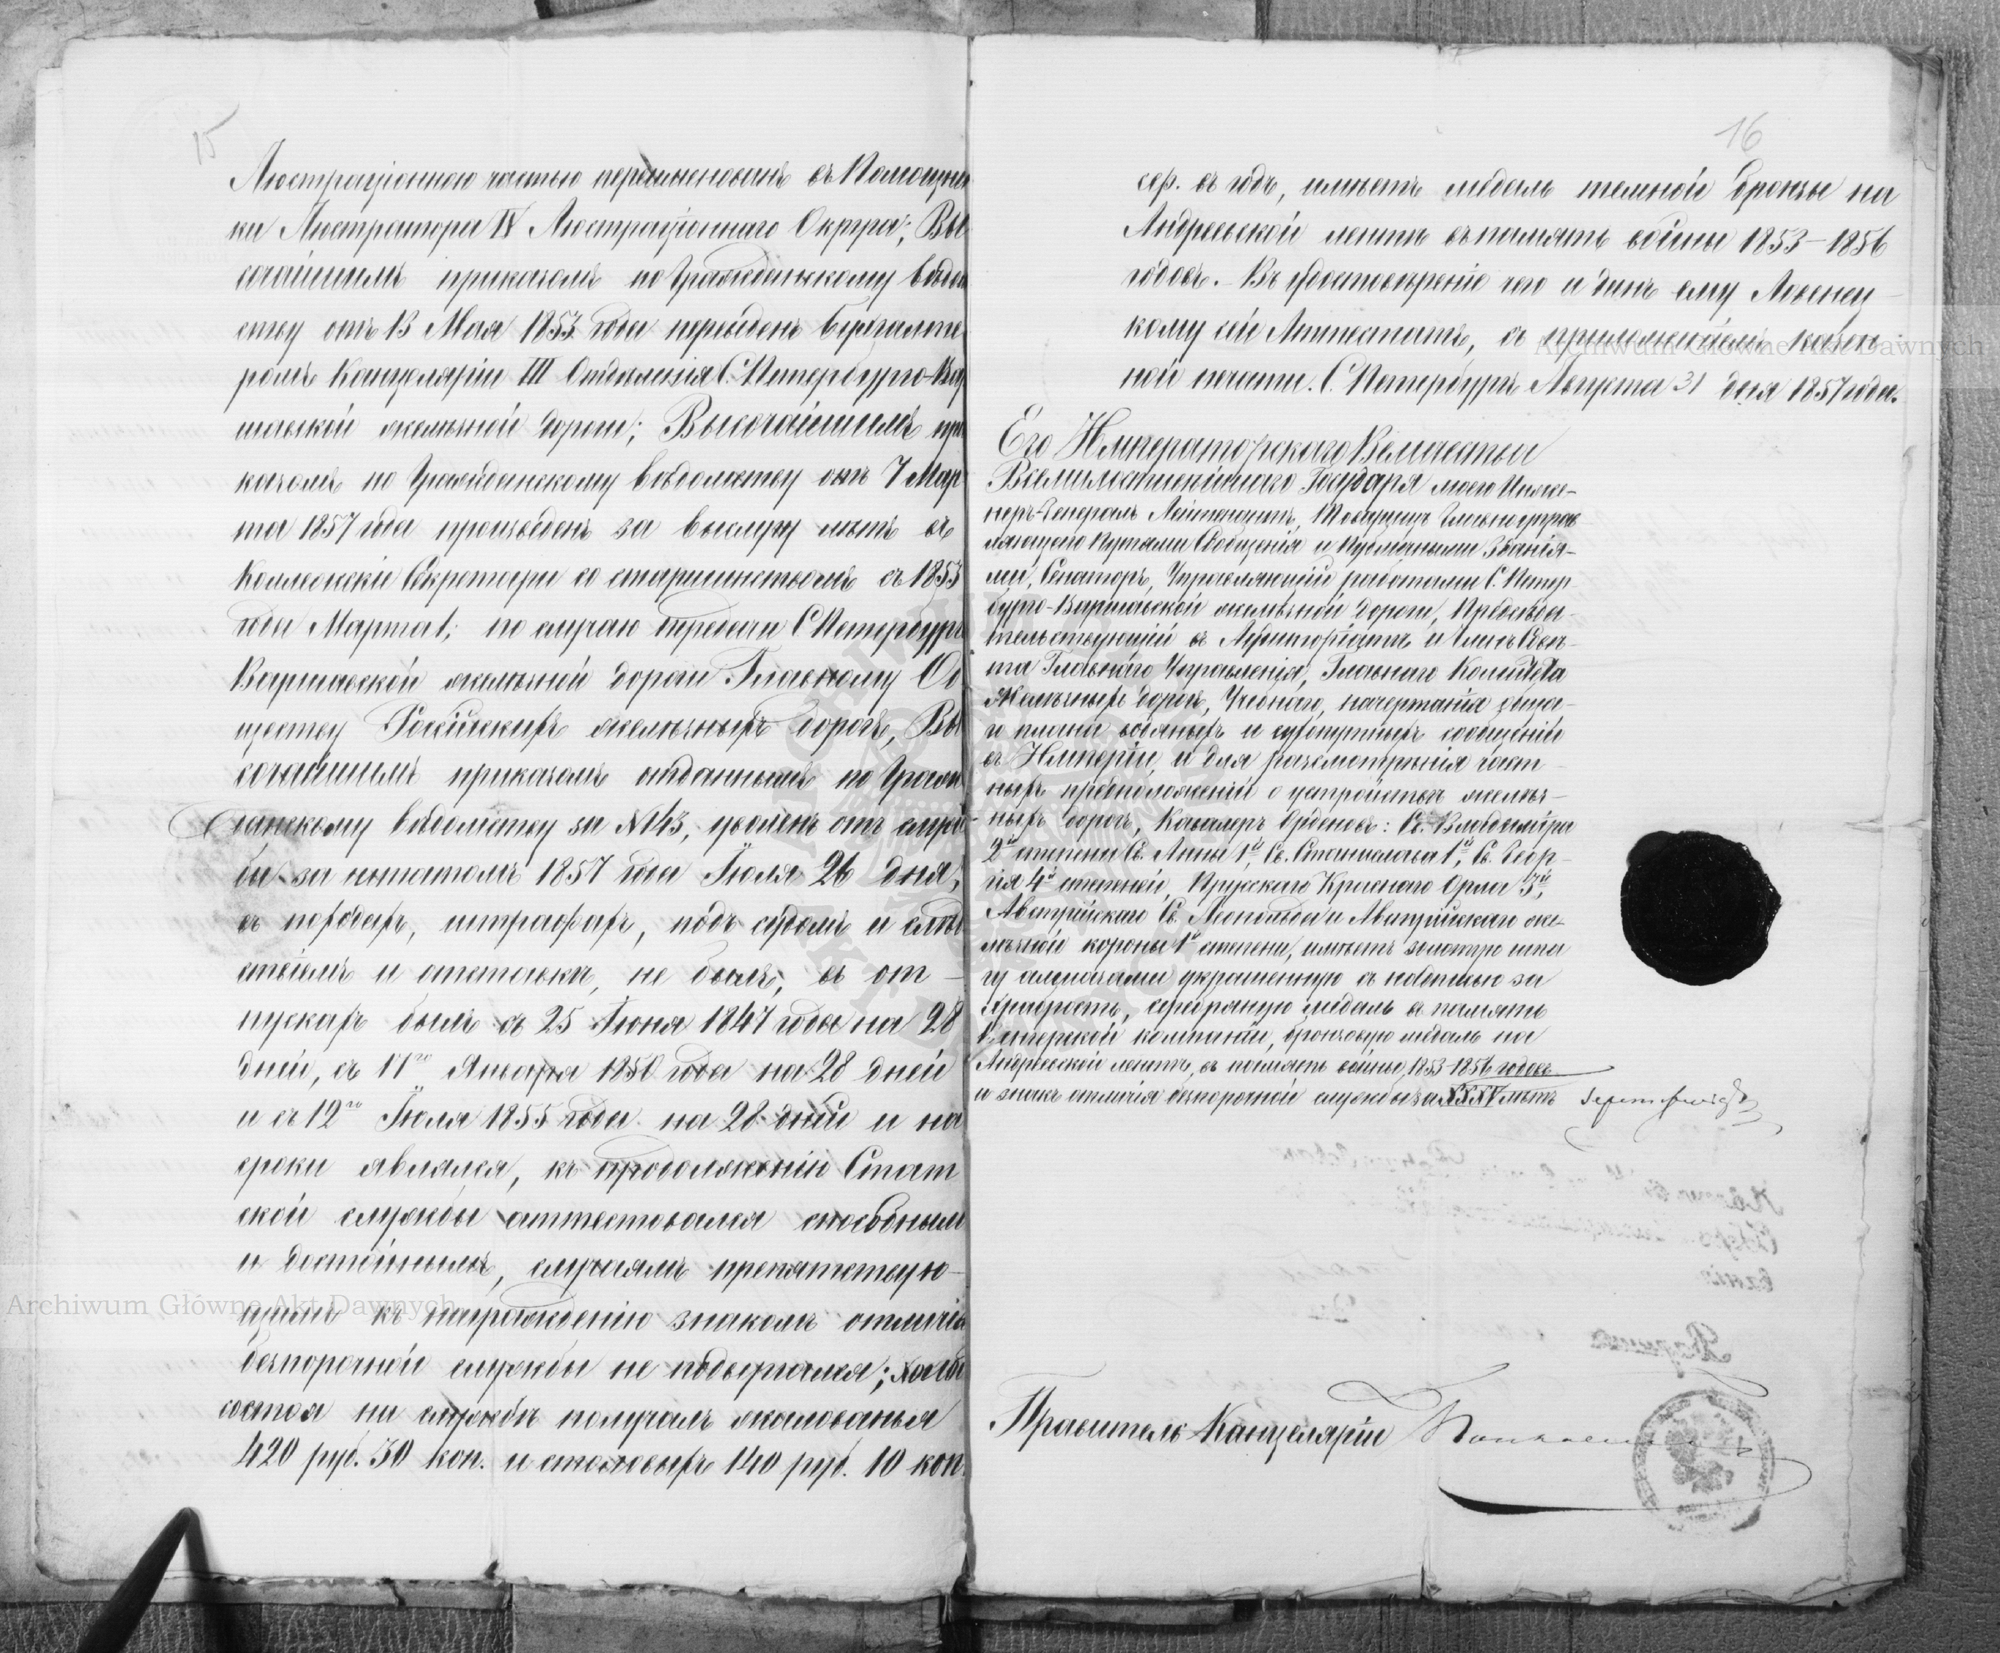 15
Люстраціонною частью переименованъ въ Помощни
ки Люстратора IV Люстраціоннаго Округа; Вы
сочайшимъ приказомъ по Гражданскому вѣдом
ству отъ 13 Мая 1853 года переведенъ Бухгалте
ромъ Канцеляріи III Отдѣленія С. Петербурго-Вар
шавской желѣзной дороги; Высочайшимъ при
казомъ по Гражданскому вѣдомству отъ 7 Мар
та 1857 года произведенъ за выслугу лѣтъ въ
Коллежскіе Секретари со старшинствомъ съ 1853
года Марта 1; по случаю передачи С Петербурго
Варшавской желѣзной дороги Главному Об
ществу Россійскихъ желѣзныхъ дорогъ, Вы
сочайшимъ приказомъ отданнымъ по Граж
данскому вѣдомству за № 143, уволенъ отъ служ
бы за штатомъ 1857 года Іюля 26 дня;
въ походахъ, штрафахъ, подъ судомъ и слѣд
ствіемъ и отставкѣ, не былъ; въ от-
пускахъ былъ съ 25 Іюня 1847 года на 28
дней, съ 11го Января 1850 года на 28 дней
и съ 12го Іюля 1855 года на 28 дней и на
сроки являлся, къ продолженію Стат
ской службы аттестовался способнымъ
и достойнымъ, случаямъ препятствую-
щимъ къ награжденію знакомъ отличія
безпорочной службы не подвергался;
состоя на службѣ получалъ жалованья
420 руб. 30 коп. и столовыхъ 140 руб. 10 коп.
16
сер. въ годъ, имѣетъ медаль темной бронзы на
Андреевской лентѣ въ память войны 1853-1856
годовъ. - Въ удостовѣреніе чего и данъ ему
кому сей Аттестатъ, съ приложеніемъ казен
ной печати. С. Петербургъ Августа 31 дня 1857 года.
Его Императорскаго Величества
Всемилостивѣйшаго Государя моего Инже-
неръ-Генералъ Лейтенантъ, Товарищъ Главноуправ
ляющаго Путями Сообщенія и Публичными Зданія-
ми, Сенаторъ, Управляющій работами С. Петер
бурго-Варшавской желѣзной дороги, Предсѣда-
тельствующій въ Аудиторіатѣ и Членъ Совѣ-
та Главнаго Управленія, Главнаго Комитета
Желѣзныхъ дорогъ, Учебнаго, начертанія обща-
го плана водяныхъ и сухопутныхъ сообщеній
въ Имперіи, и для разсмотрѣнія част-
ныхъ предположеній о устройствѣ желѣз-
ныхъ дорогъ, Кавалеръ Орденовъ: Св. Владиміра
2й степени Св. Анны 1й, Св. Станислава 1й, Св. Геор-
гія 4й степеней, Прусскаго Краснаго Орла 3й,
Австрійскаго Св. Леопольда и Австрійскаго же-
лѣзной короны 1й степени, имѣетъ золотую шпа
гу алмазами украшенную съ надписью за
храбрость, серебряную медаль въ память
Венгерской компаніи, бронзовую медаль на
Андреевской лентѣ, въ память войны 1853-1856 годовъ
и знакъ отличія безпорочной службы за XXXV лѣтъ
Правитель Канцеляріи
Archiwum Główne Akt Dawnych
Archiwum Główne Akt Dawnych